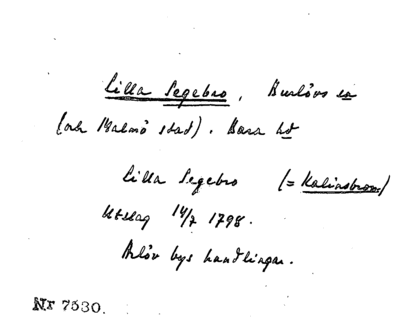 Lilla Segebro, Burlövs sn
(och Malmö stad). Bara hd
Lilla Segebro (= Kalinsbro)
Utslag 14/7 1798.
Arlöv bys handlingar.
Nr 7530.